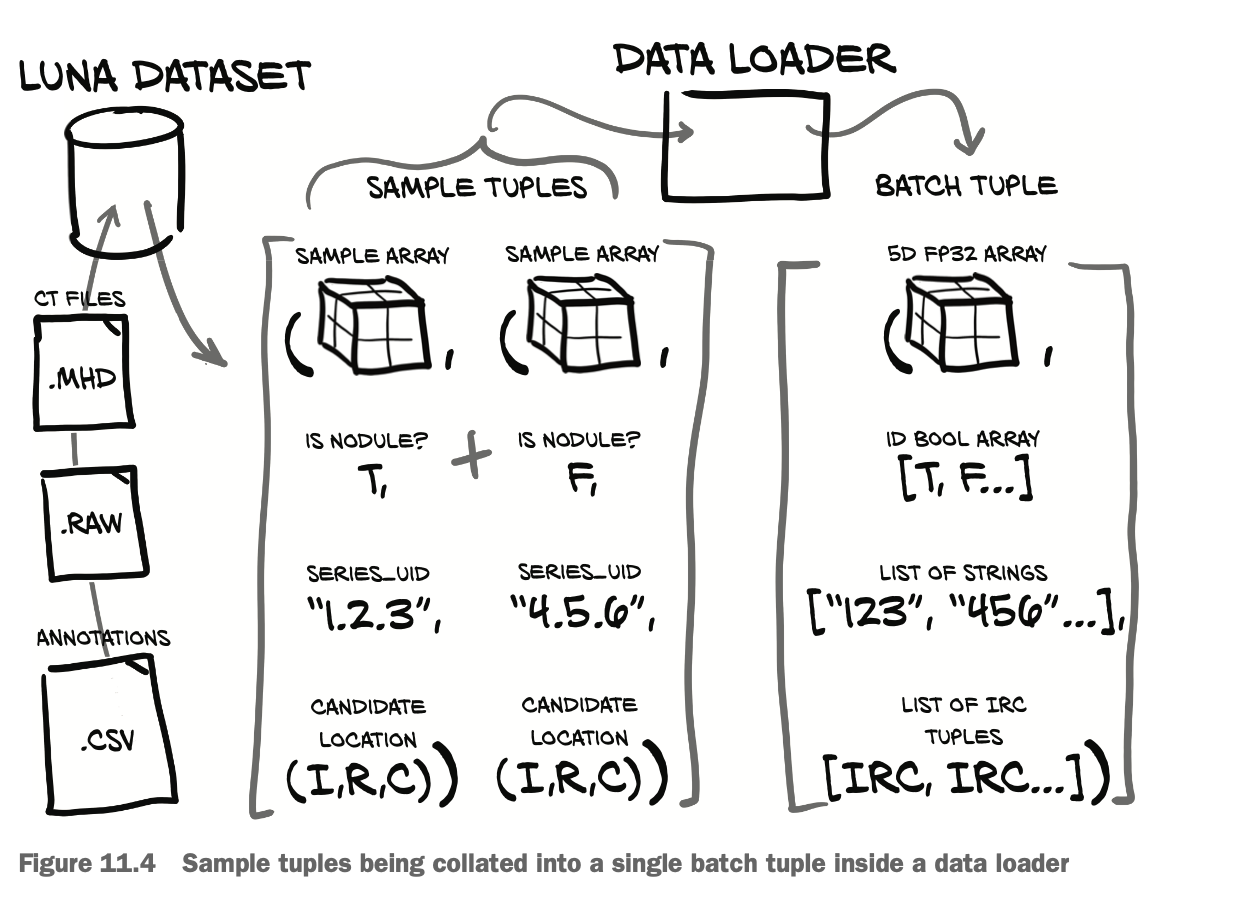 LUNA DATASET
DATA LOADER
SAMPLE TUPLES
BATCH TUPLE
CT FILES
.MHD
.RAW
ANNOTATIONS
.CSV
SAMPLE ARRAY
(
,
IS NODULE?
T,
SERIES_UID
"1.2.3",
CANDIDATE
LOCATION
(I,R,C))
+
SAMPLE ARRAY
(
,
IS NODULE?
F,
SERIES_UID
"4.5.6",
CANDIDATE
LOCATION
(I,R,C))
5D FP32 ARRAY
(
,
1D BOOL ARRAY
[T, F...]
LIST OF STRINGS
["123", "456"...],
LIST OF IRC
TUPLES
[IRC, IRC...])
Figure 11.4 Sample tuples being collated into a single batch tuple inside a data loader